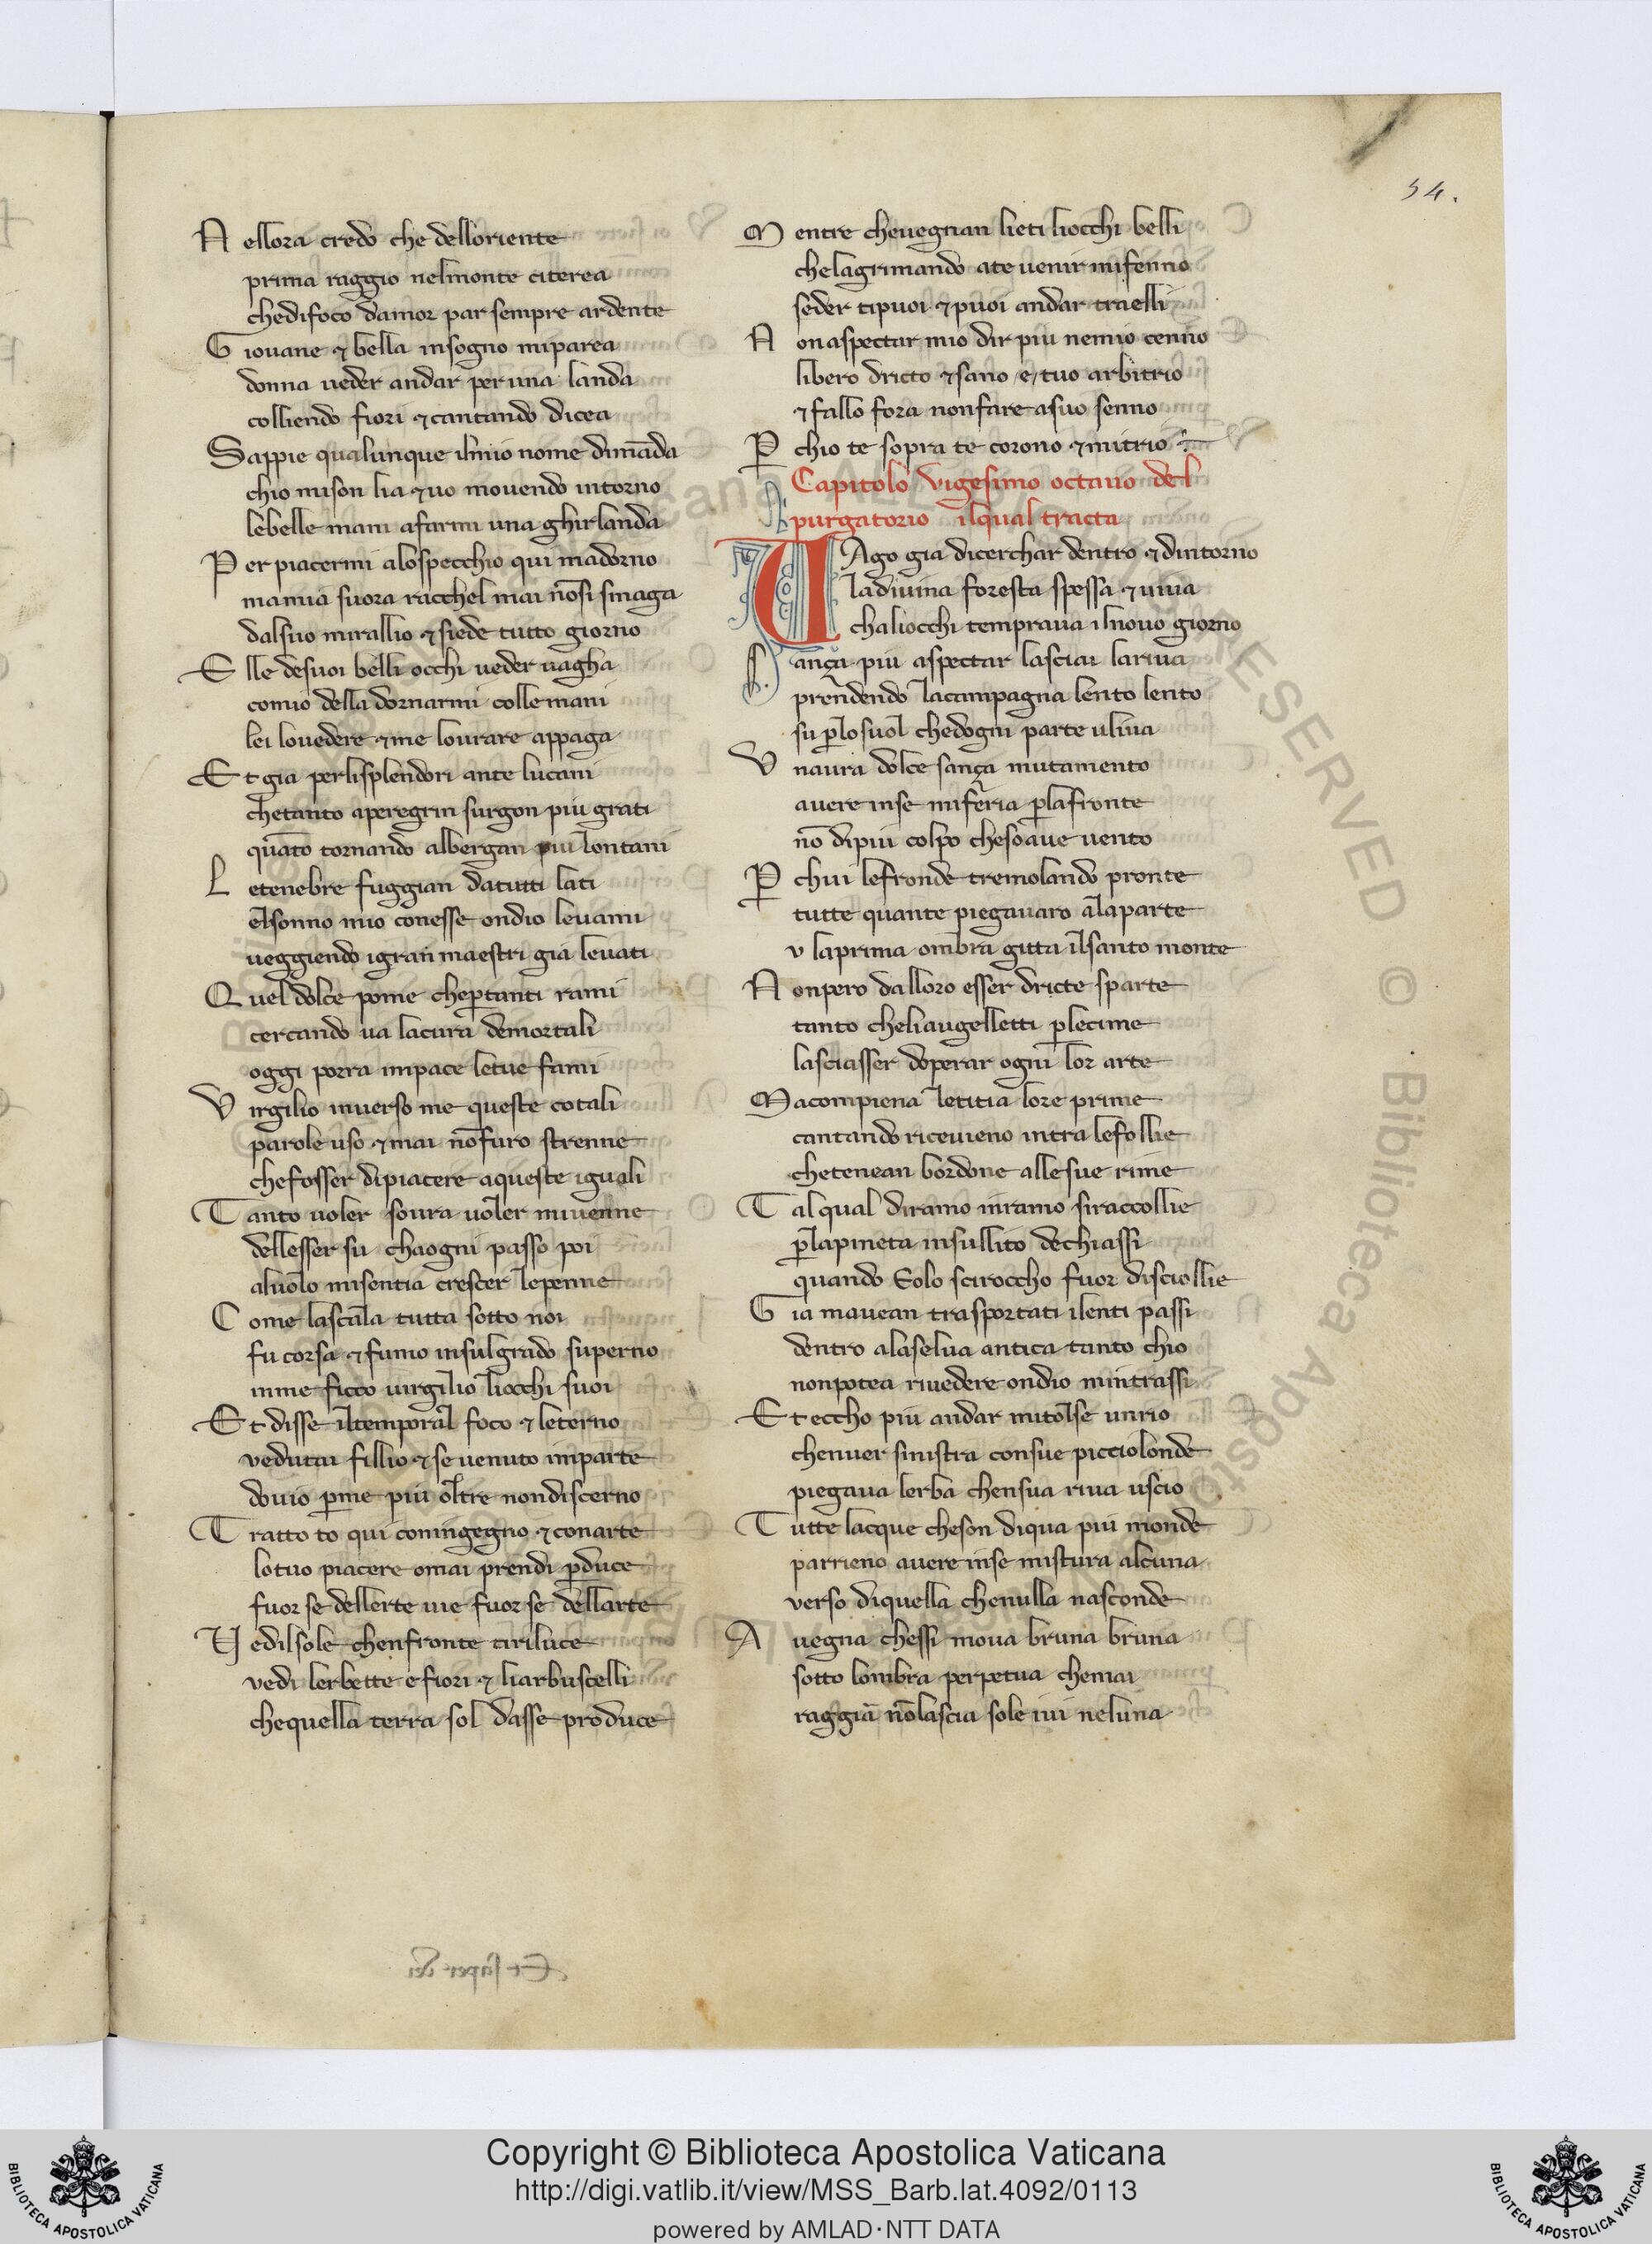 54.
N ellora credo che delloriente
prima raggio nelmonte citerea
chedifoco damor par sempre ardente
G iouane ⁊ bella insogno miparea
donna ueder andar per una landa
colliendo fiori ⁊ cantando dicea
Sappie qualunque ilmio nome dimāda
chio mison lia ⁊ uo mouendo intorno
lebelle mani afarmi una ghirlanda
P er piacermi alospecchio qui madorno
mamia suora racchel mai nōsi smaga
dalsuo mirallio ⁊ siede tutto giorno
E lle desuoi belli occhi ueder uagha
comio della dornarmi colle mani
lei louedere ⁊ me lourare appaga
E t gia perlisplendori ante lucani
chetanto aperegrin surgon piu grati
quāto tornando albergan piu lontani
L etenebre fuggian datutti lati
elsonno mio conesse ondio leuami
ueggiendo igran maestri gia leuati
Q uel dolce pome cheꝑtanti rami
cercando ua lacura demortali
oggi porra impace letue fami
V irgilio inuerso me queste cotali
parole uso ⁊ mai nōfuro strenne
chefosser dipiacere aqueste iguali
T anto uoler soura uoler miuenne
dellesser su chaogni passo poi
aluolo misentia crescer lepenne
C ome lascala tutta sotto noi
fu corsa ⁊ fumo insulgrado superno
inme ficco uirgilio liocchi suoi
E t disse iltemporal foco ⁊ leterno
vedutai fillio ⁊ se uenuto imparte
douio ꝑme piu oltre nondiscerno
T ratto to qui coningegno ⁊ conarte
lotuo piacere omai prendi ꝑduce
fuor se dellerte uie fuor se dellarte
V edilsole chenfronte tiriluce
vedi lerbette e fiori ⁊ liarbuscelli
chequella terra sol dasse produce
M entre cheuegnan lieti liocchi belli
chelagrimando ate uenir mifenno
seder tipuoi ⁊ puoi andar traelli
N onaspectar mio dir piu nemio cenno
libero dricto ⁊ sano e tuo arbitrio
⁊ fallo fora nonfare asuo senno
Ꝑ chio te sopra te corono ⁊ mitrio
Capitolo vigesimo octauo del
purgatorio ilqual tracta
VAgo gia dicerchar dentro ⁊ dintorno
ladiuina foresta spessa ⁊ uiua
chaliocchi tempraua ilnouo giorno
S ança piu aspectar lasciai lariua
prendendo lacampagna lento lento
su ꝑlosuol chedogni parte uliua
V naura dolce sança mutamento
auere inse miferia ꝑlafronte
nō dipiu colpo chesoaue uento
Ꝑ chui lefronde tremolando pronte
tutte quante piegauaro alaparte
v laprima ombra gitta ilsanto monte
N onpero dalloro esser dricte sparte
tanto cheliaugelletti ꝑlecime
lasciasser doperar ogni lor arte
Macompiena letitia lore prime
cantando riceuieno intra lefollie
chetenean bordone allesue rime
T al qual diramo inramo siraccollie
ꝑlapineta insullito dechiassi
quando Eolo sciroccho fuor disciollie
G ia mauean trasportati ilenti passi
dentro alaselua antica tanto chio
nonpotea riuedere ondio mintrassi
E t eccho piu andar mitolse unrio
chenuer sinistra consue picciolonde
piegaua lerba chensua riua uscio
T utte lacque cheson diqua piu monde
parrieno auere inse mistura alcuna
verso diquella chenulla nasconde
A uegna chessi moua bruna bruna
sotto lombra perpetua chemai
raggiā nōlascia sole iui neluna
Copyright © Biblioteca Apostolica Vaticana
http://digi.vatlib.it/view/MSS_Barb.lat.4092/0113
powered by AMLAD·NTT DATA
BIBLIOTECA APOSTOLICA VATICANA
BIBLIOTECA APOSTOLICA VATICANA